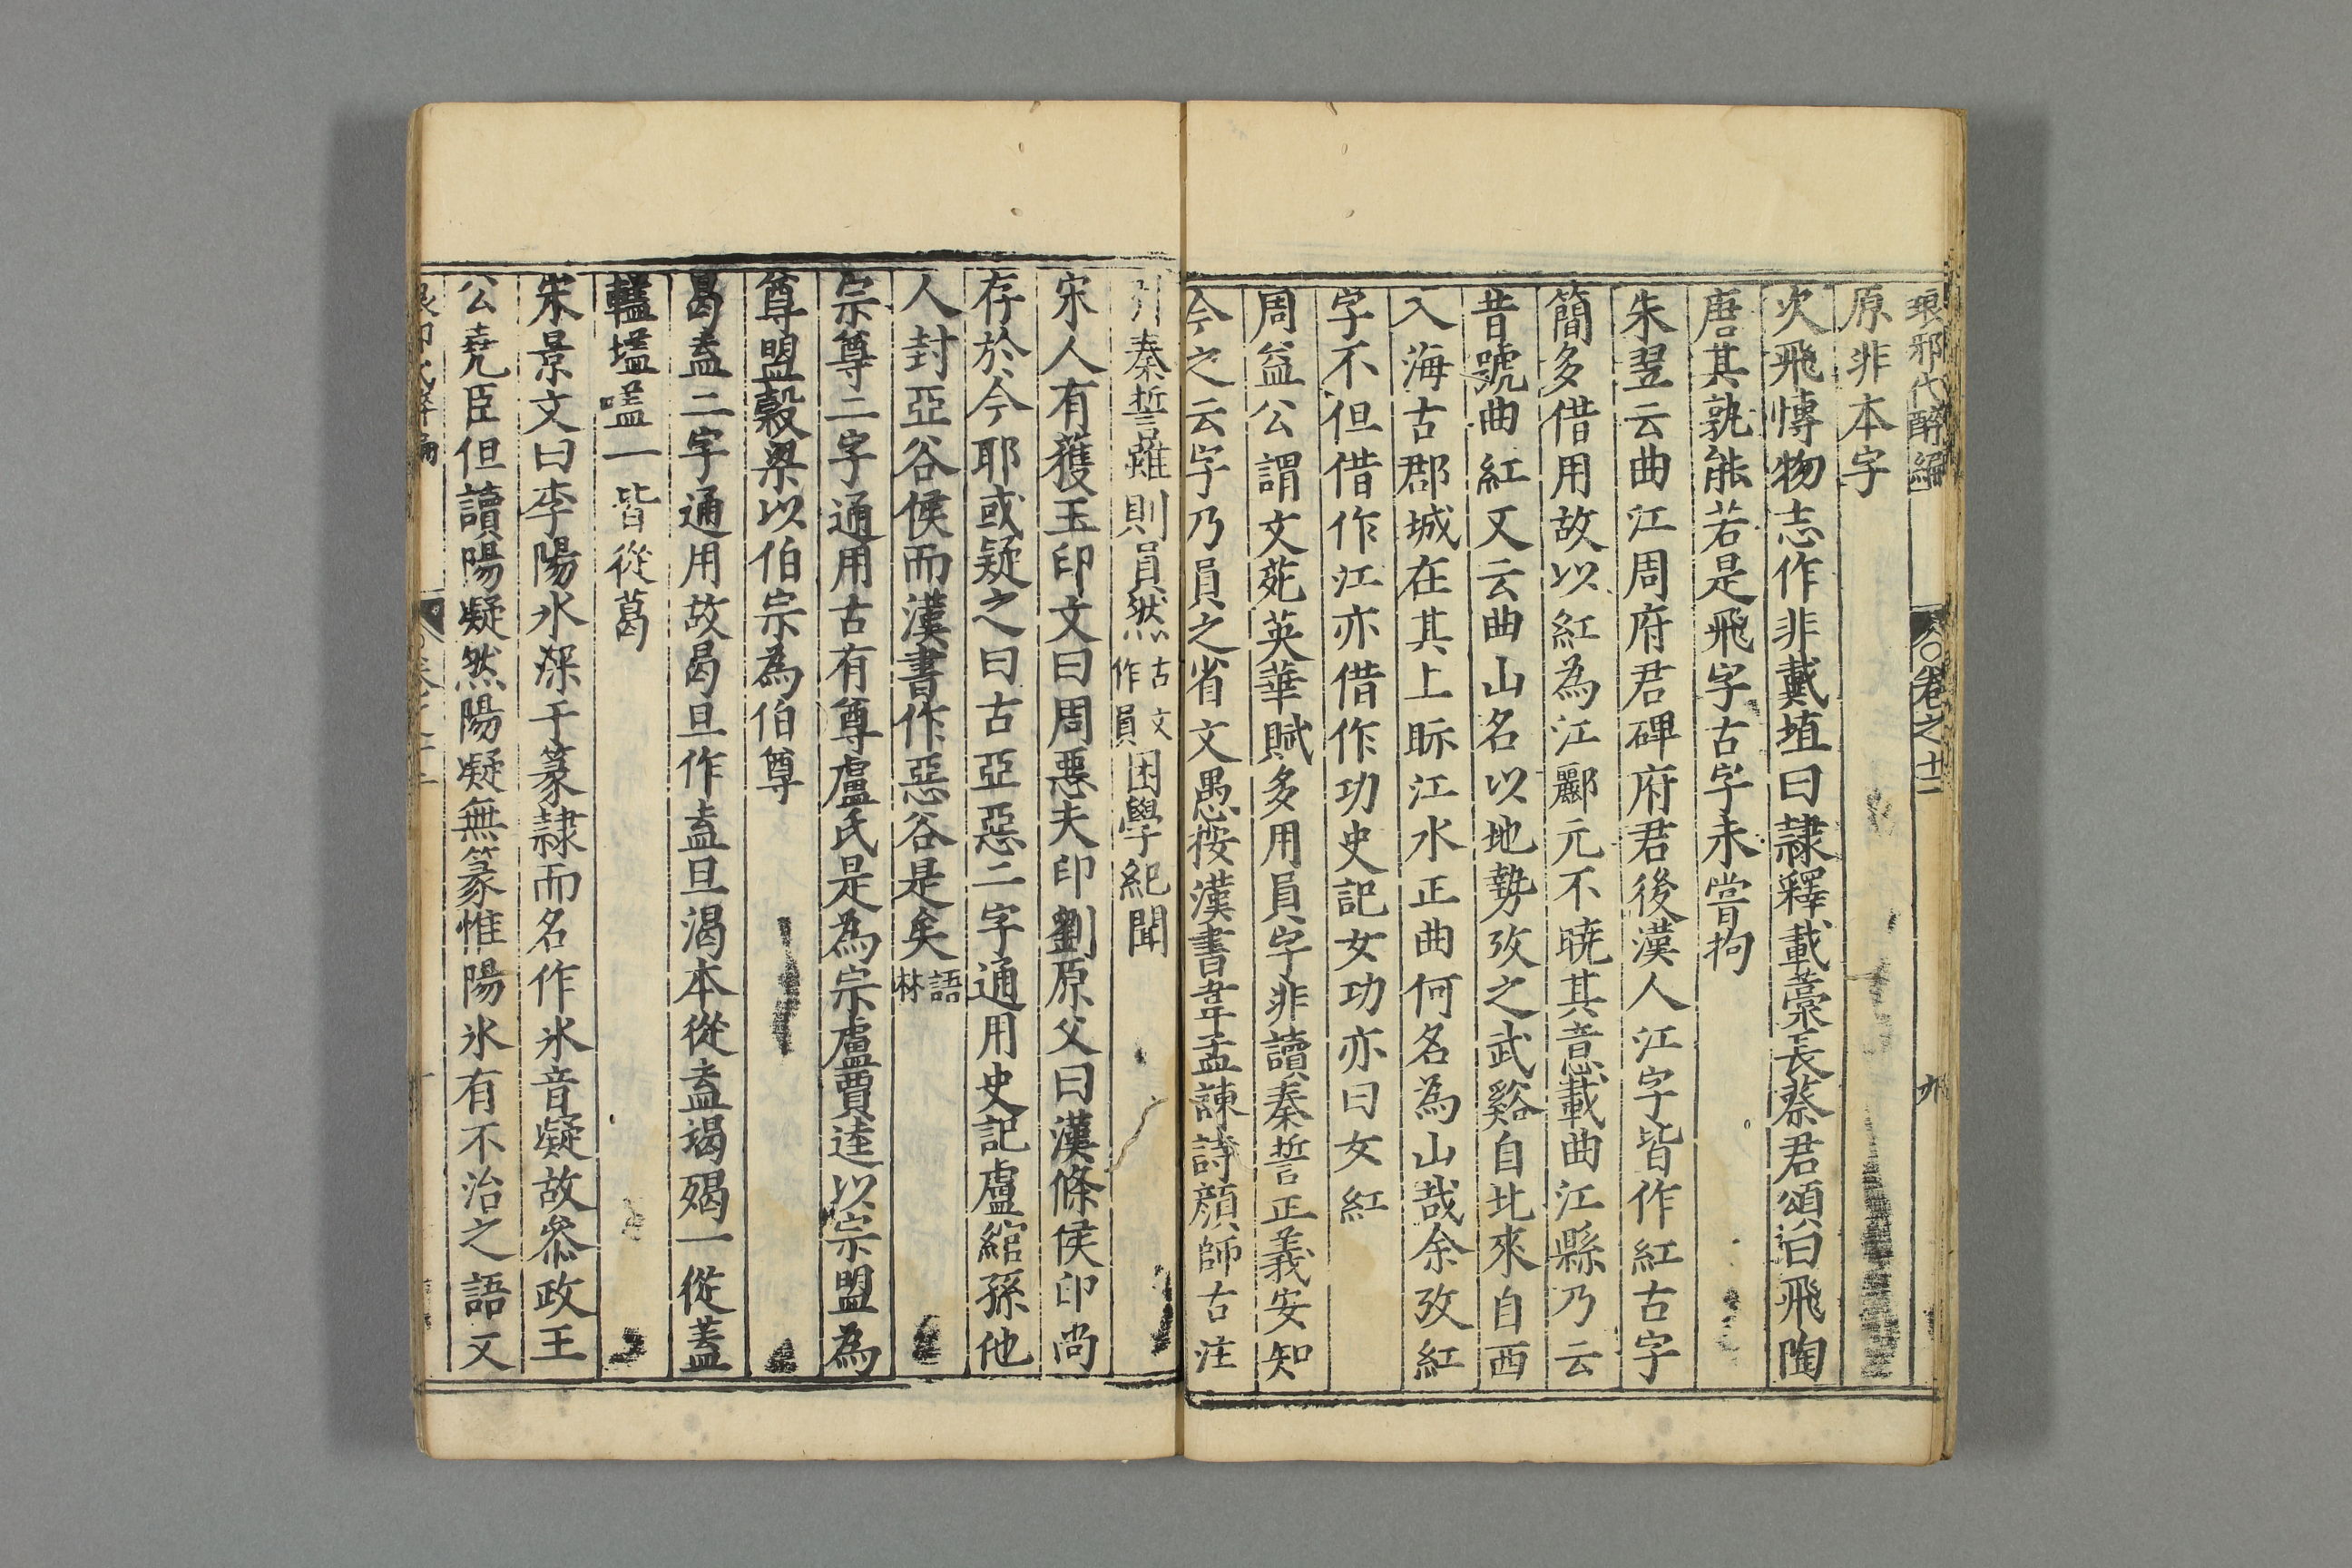 琅邪代醉編 卷之十一 九
原非本字
次飛愽物志作非戴埴曰隷釋載藁長蔡君頌曰飛陶
唐其孰能若是飛字古字未嘗拘
朱翌云曲江周府君碑府君後漢人江字皆作紅古字
簡多借用故以紅為江酈元不曉其意載曲江縣乃云
昔號曲紅又云曲山名以地勢攷之武谿自北來自西
入海古郡城在其上眎江水正曲何名為山哉余攷紅
字不但借作江亦借作功史記女功亦曰女紅
周益公謂文苑英華賦多用員字非讀秦誓正義安知
今之云字乃員之省文愚按漢書韋孟諫詩顔師古注
引秦誓雖則員然古文作員困學紀聞
宋人有獲玉印文曰周惡夫印劉原父曰漢條侯印尚
存於今耶或疑之曰古亞惡二字通用史記盧綰孫他
人封亞谷侯而漢書作惡谷是矣語林
宗尊二字通用古有尊盧氏是為宗盧賈逵以宗盟為
尊盟穀梁以伯宗為伯尊
曷盍二字通用故曷旦作盍旦渴本從盍竭殨一從蓋
轀壒嗑一皆從葛
宋景文曰李陽氷深于篆隷而名作氷音凝故叅政王
公堯臣但讀陽凝然陽凝無篆惟陽氷有不治之語又